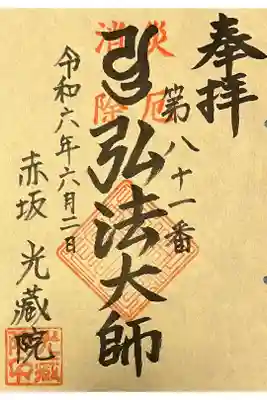 奉拝
第八十一番
災厄
消除
弘法大師
令和六年六月二日
赤坂 光蔵院